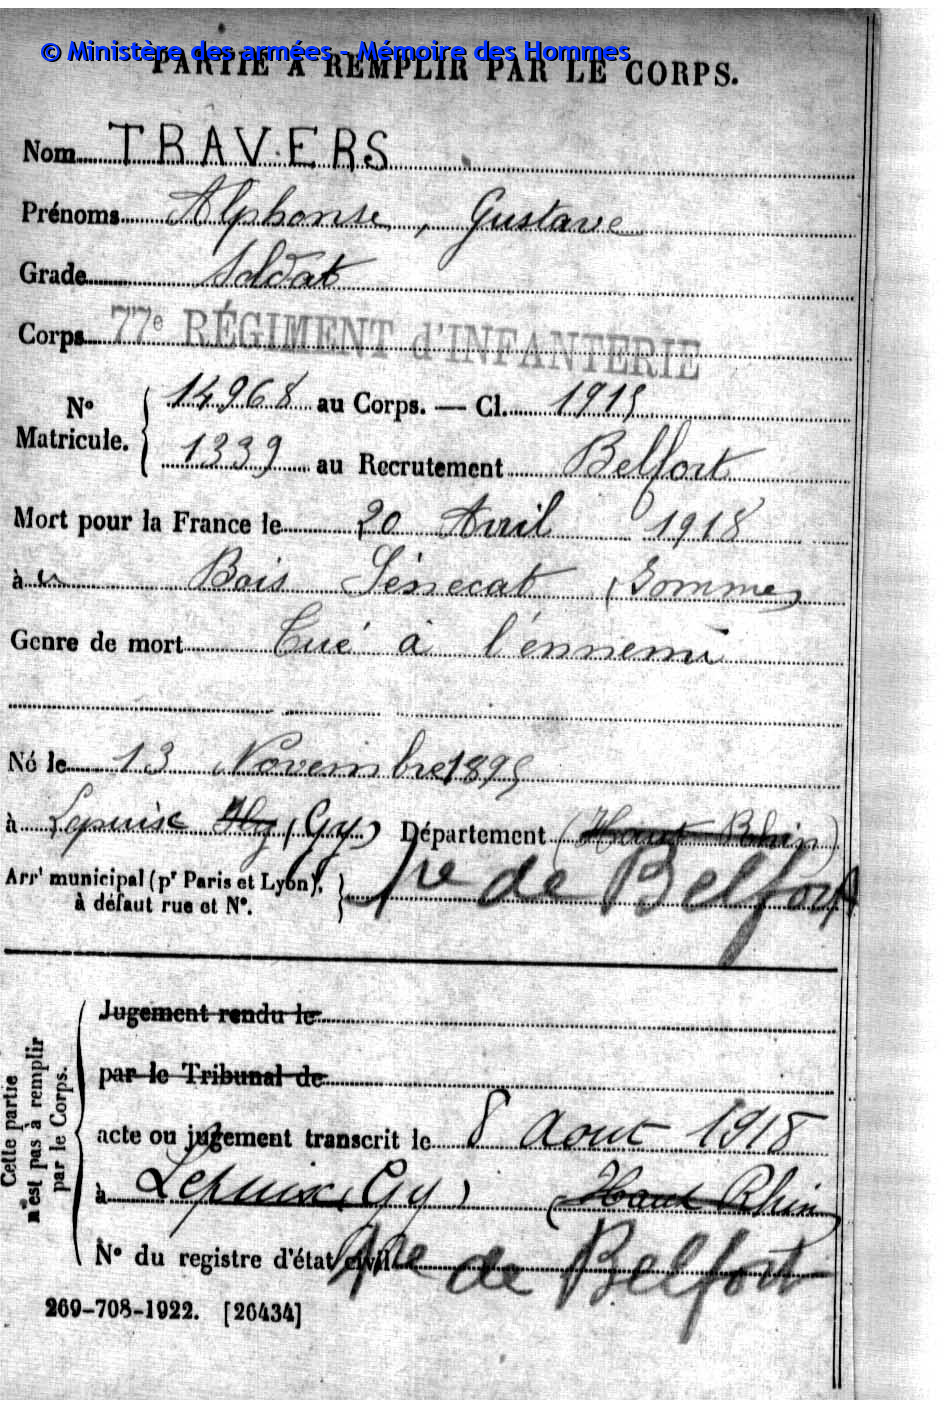 © Ministère des armées - Mémoire des Hommes
PARTIE À REMPLIR PAR LE CORPS.
Nom TRAVERS
Prénoms Alphonse, Gustave
Grade Soldat
Corps 77e RÉGIMENT d'INFANTERIE
No Matricule. 14968 au Corps. — Cl. 1915
1339 au Recrutement Belfort
Mort pour la France le 20 Avril 1918
à u Bois Sénecat (Somme)
Genre de mort Tué à l'ennemi
Né le 13 Novembre 1895
à Lepuix Hg (Gy) Département (Haut Rhin)
Arrt municipal (pr Paris et Lyon), à défaut rue et No. }
re de Belfort
Cette partie n'est pas à remplir par le Corps.
Jugement rendu le
par le Tribunal de
acte ou jugement transcrit le 8 Aout 1918
à Lepuix (Gy) (Haut Rhin)
No du registre d'état civil
re de Belfort
269-708-1922. [26434]